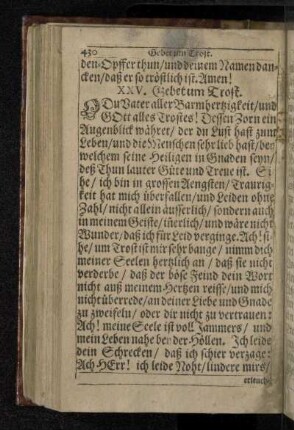 430 Gebet um Trost.
den-Opffer thun/ und deinem Namen dan-
cken/ daß er so tröstlich ist. Amen!
XXV. Gebet um Trost.
O Du Vater aller Barmhertzigkeit/ und
GOtt alles Trostes! Dessen Zorn ein
Augenblick währet/ der du Lust hast zum
Leben/ und die Menschen sehr lieb hast/ bey
welchem seine Heiligen in Gnaden seyn/
deß Thun lauter Güte und Treue ist. Si-
he/ ich bin in grossen Aengsten/ Traurig-
keit hat mich überfallen/ und Leiden ohne
Zahl/ nicht allein äusserlich/ sondern auch
in meinem Geiste/ iñerlich/ und wäre nicht
Wunder/ daß ich für Leid verginge. Ach! si-
he/ um Trost ist mir sehr bange/ nimm dich
meiner Seelen hertzlich an/ daß sie nicht
verderbe/ daß der böse Feind dein Wort
nicht auß meinem Hertzen reisse/ und mich
nicht überrede/ an deiner Liebe und Gnade
zu zweifeln/ oder dir nicht zu vertrauen:
Ach! meine Seele ist voll Jammers/ und
mein Leben nahe bey der Höllen. Ich leide
dein Schrecken/ daß ich schier verzage:
Ach HErr! ich leide Noht/ lindere mirs/
erleuchte